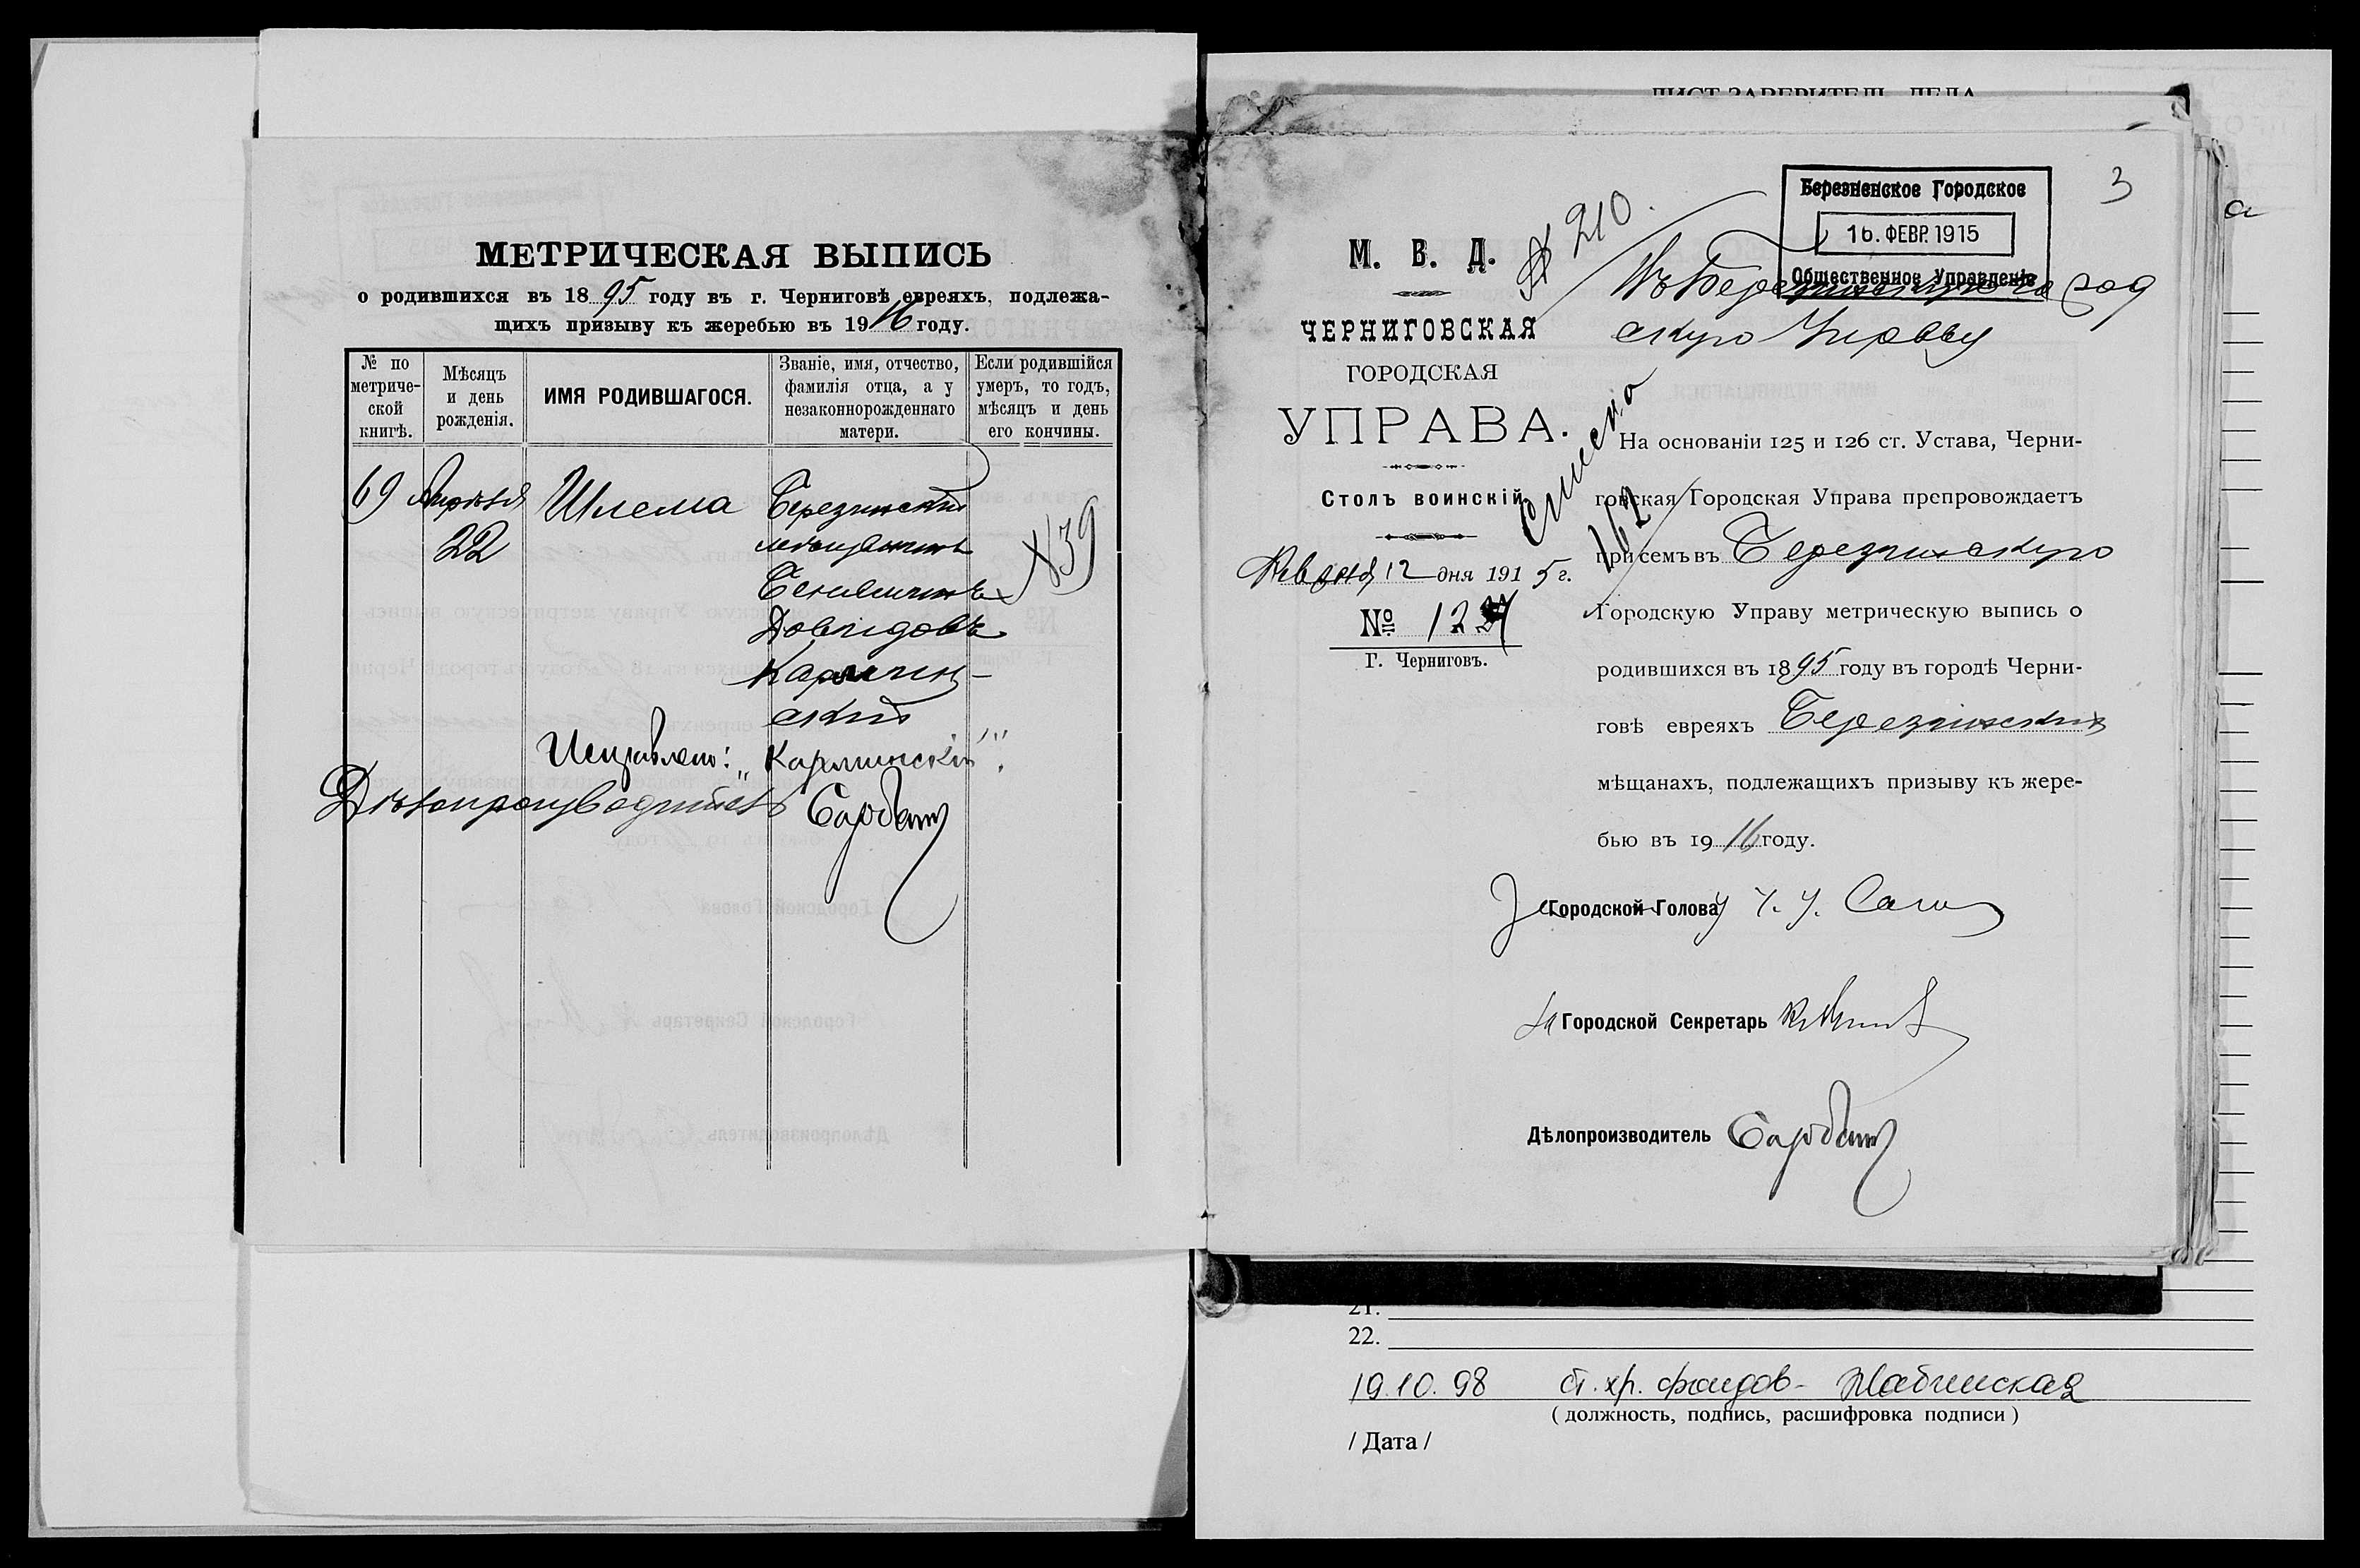 МЕТРИЧЕСКАЯ ВЫПИСЬ
о родившихся въ 1895 году въ г. Черниговѣ евреяхъ, подлежа-
щихъ призыву къ жеребью въ 1916 году.
№ по метриче-ской книгѣ.
Мѣсяцъ и день рожденія.
ИМЯ РОДИВШАГОСЯ.
Званіе, имя, отчество, фамилія отца, а у незаконнорожденнаго матери.
Если родившійся умеръ, то годъ, мѣсяцъ и день его кончины.
69 Апрѣля Шлема Березинскій
22 мѣщанинъ
№39
Довидовъ
Кармин-
скій
Исправлено: „Карминскій".
Дѣлопроизводитель
3
Березненское Городское
16. ФЕВР. 1915
Общественное Управленіе
№ 210.
М. В. Д.
Въ Березинскую Город
скую Управу
ЧЕРНИГОВСКАЯ
ГОРОДСКАЯ
УПРАВА.
Столъ воинскій
Февраля 12 дня 1915 г.
№ 1224
Г. Черниговъ.
На основаніи 125 и 126 ст. Устава, Черни-
говская Городская Управа препровождаетъ
при семъ въ Березинскую
Городскую Управу метрическую выпись о
родившихся въ 1895 году въ городѣ Черни-
говѣ евреяхъ Березинскихъ
мѣщанахъ, подлежащихъ призыву къ жере-
бью въ 1916 году.
За Городской Голова
За Городской Секретарь
Дѣлопроизводитель
21.
22.
19.10.98 ст. хр. фондов-
( должность, подпись, расшифровка подписи )
/ Дата /